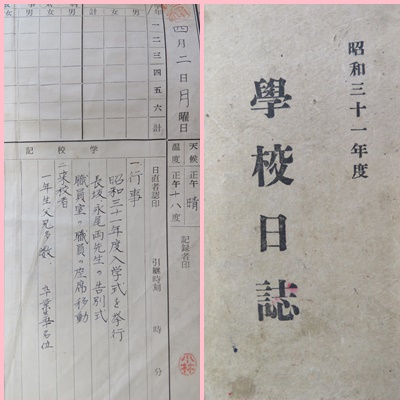 昭和三十一年度
學校日誌
四月二日月曜日
天候 正午 晴
温度 正午 十八度
記録者印
学校記
日直者認印 引継時刻 時 分
一、行事
昭和三十一年度入学式を挙行
長坂永尾両先生の告別式
職員室の職員の座席移動
二、来校者
一年生父兄多数、
年 一 二 三 四 五 六 計
計 男 女
小林